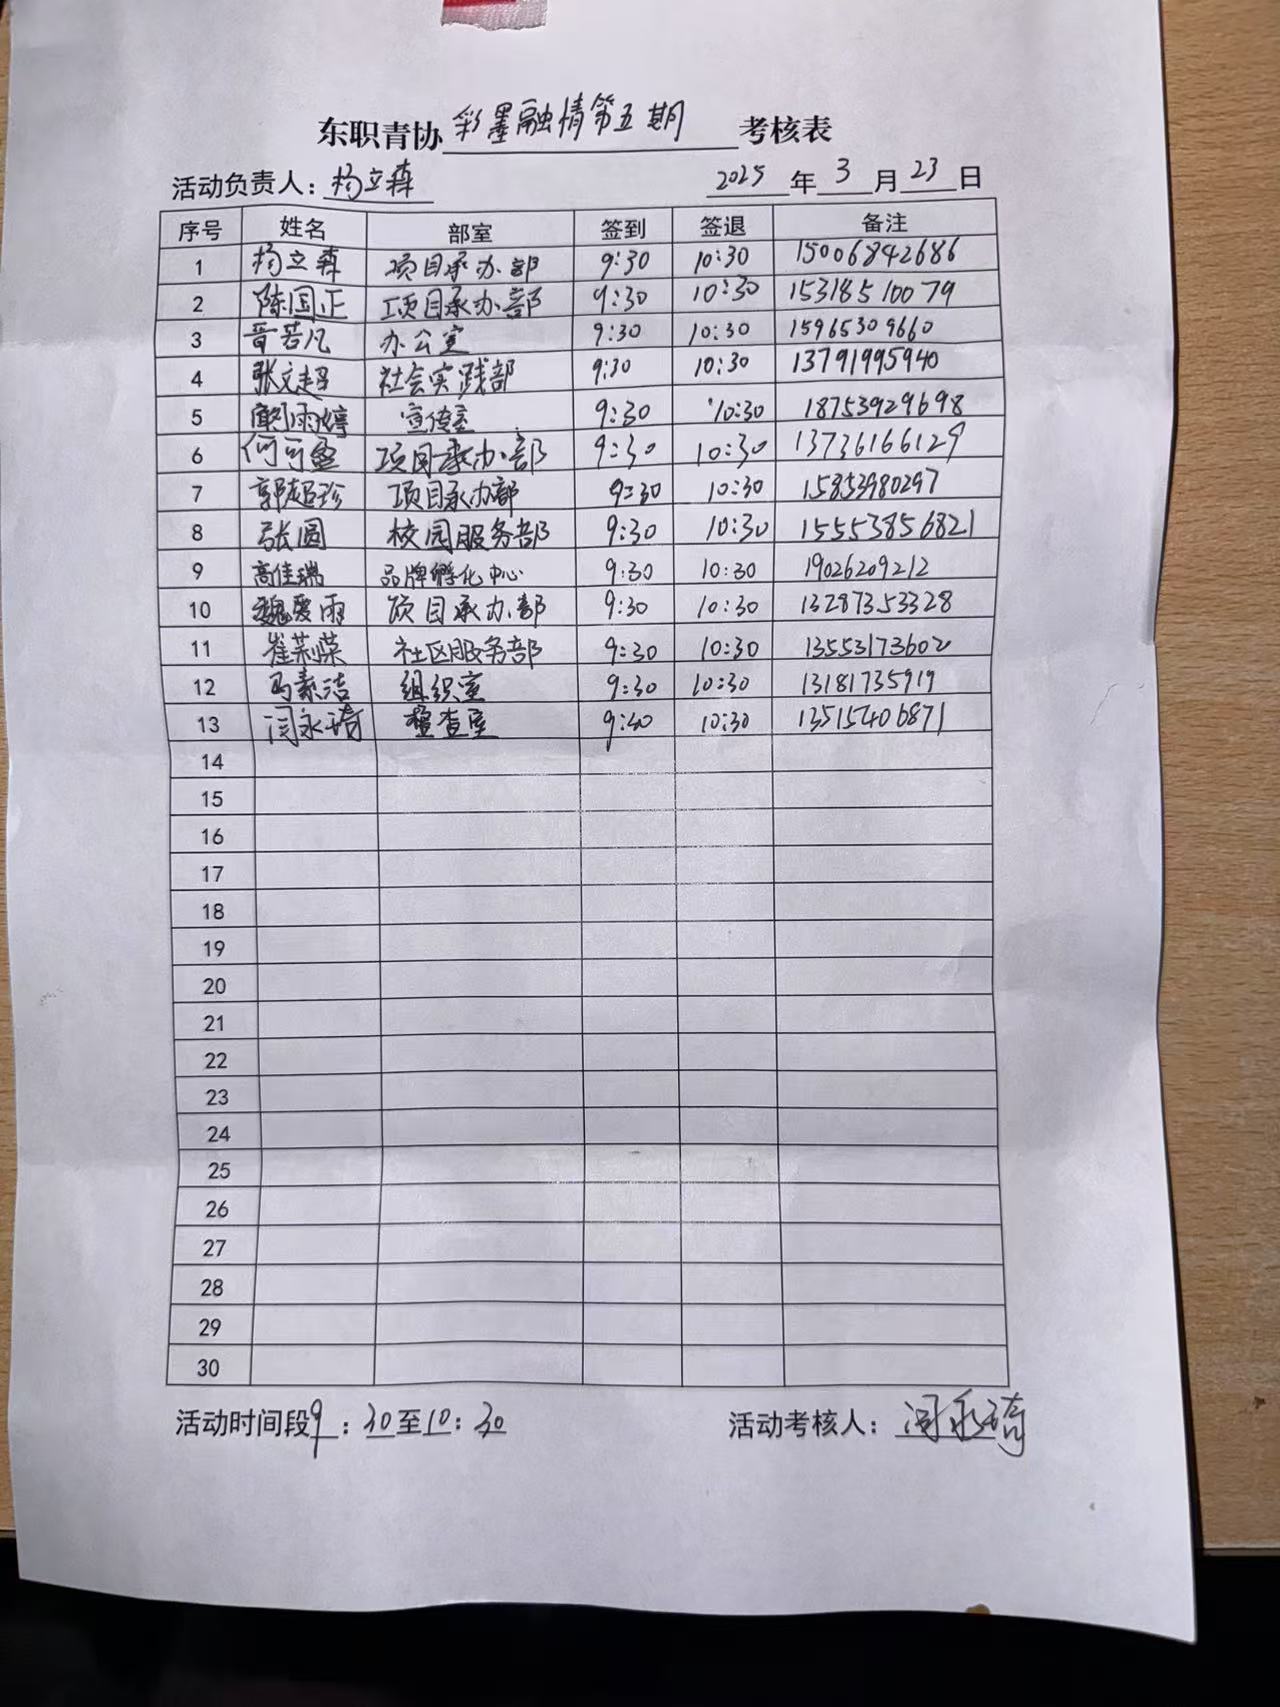 东职青协 彩墨融情第五期 考核表
活动负责人：杨立森 2025 年 3 月 23 日
序号 姓名 部室 签到 签退 备注
1 杨立森 项目承办部 9:30 10:30 15006842686
2 陈国正 项目承办部 9:30 10:30 15318510079
3 晋若凡 办公室 9:30 10:30 15965309660
4 张文超 社会实践部 9:30 10:30 13791995940
5 雨婷 宣传室 9:30 10:30 18753929698
6 何可盈 项目承办部 9:30 10:30 13736166129
7 郭超珍 项目承办部 9:30 10:30 15853980297
8 张圆 校园服务部 9:30 10:30 15553856821
9 高佳瑞 品牌孵化中心 9:30 10:30 19026209212
10 魏爱雨 项目承办部 9:30 10:30 13287353328
11 崔荣 社区服务部 9:30 10:30 13553173602
12 马素洁 组织室 9:30 10:30 13181735919
13 闫永琦 检查室 9:30 10:30 13515406871
14
15
16
17
18
19
20
21
22
23
24
25
26
27
28
29
30
活动时间段 9：30至10：30 活动考核人：闫永琦